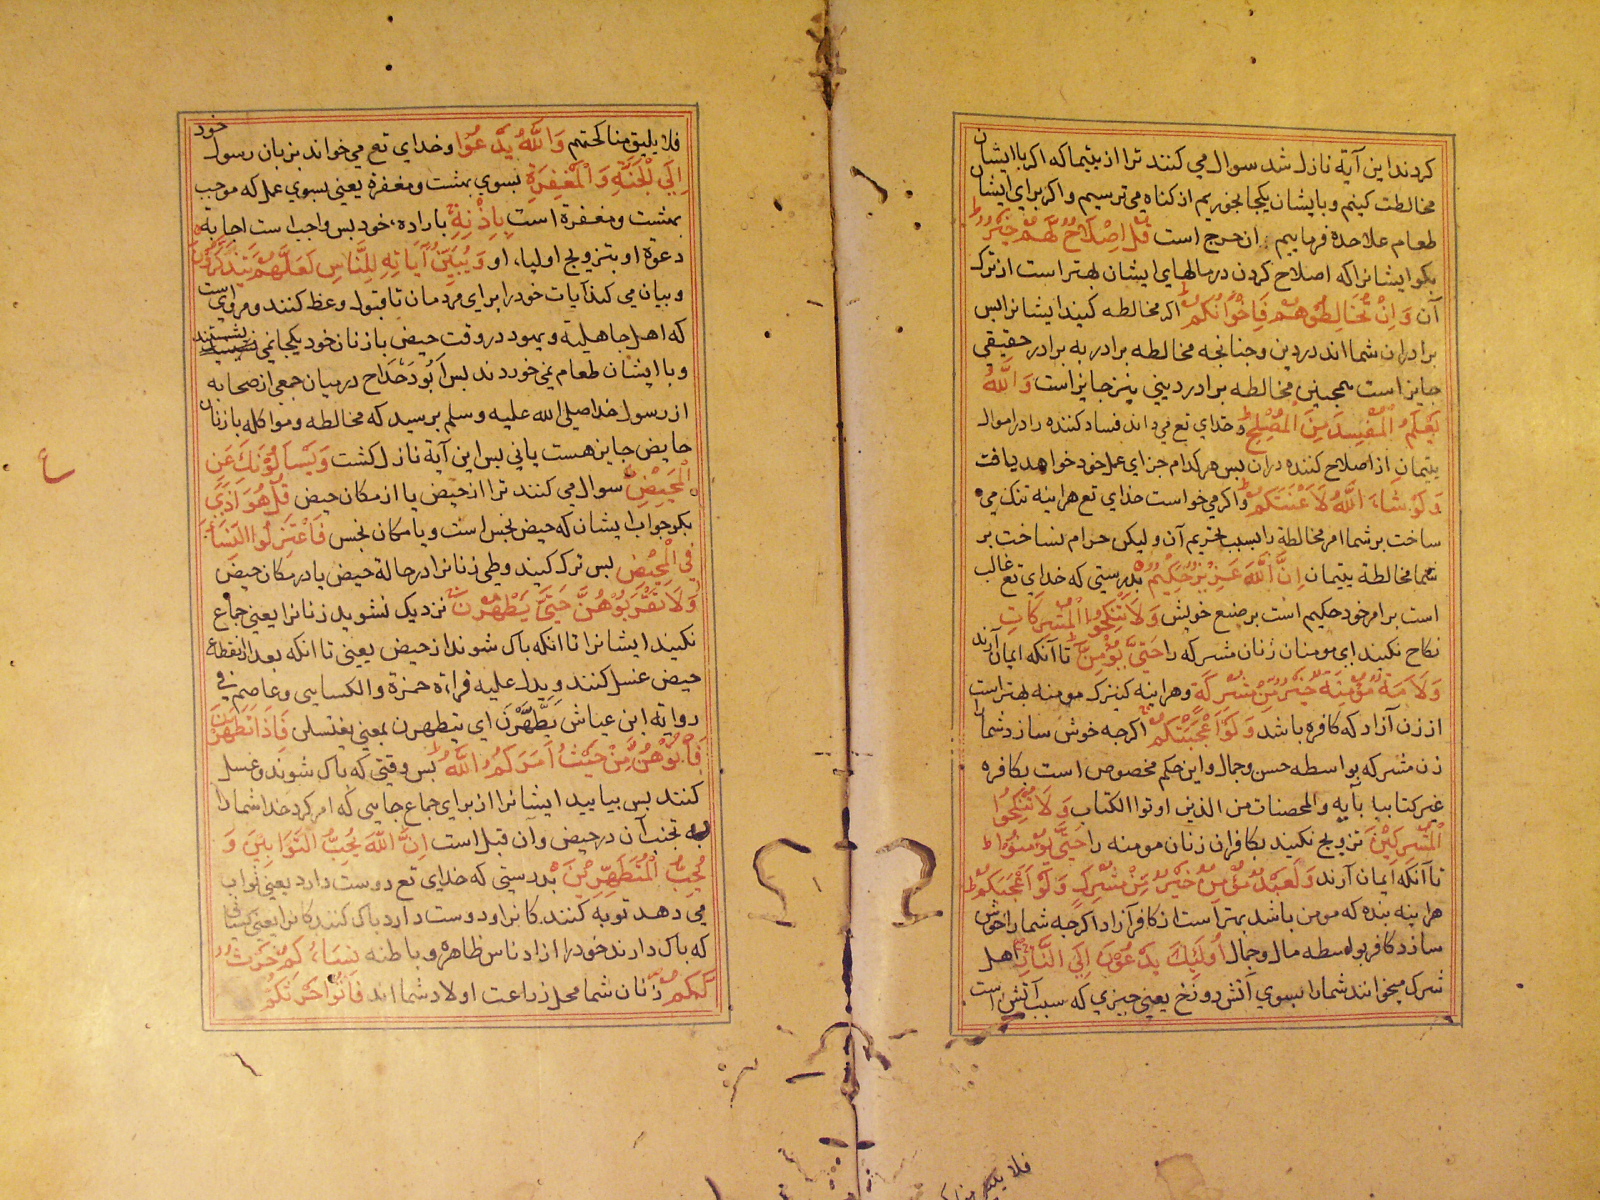 کردند این آیة نازل شد سوال می کنند ترا از یتیما که اکر با ایشان
مخالطت کینم و با ایشان یکجا بخوریم از کناه می ترسیم و اکر برای ایشان
طعام علاحده فرماییم ان حرج است قُلْ اِصْلَاحٌ لَّهُمْ خَيْرٌ ط
بکو ایشانرا که اصلاح کردن در مالهای ایشان بهتر است از ترک
آن وَاِنْ تُخَالِطُوهُمْ فَاِخْوَانُكُمْ ط اکر مخالطه کنید ایشانرا پس
برادران شما اند در دین و جنانجه مخالطه برادر به برادر حقیقی
جایز است همجنین مخالطه برادر دینی نیز جایز است وَاللّٰهُ
يَعْلَمُ الْمُفْسِدَ مِنَ الْمُصْلِحِ ط و خدای تع می داند فساد کننده را در اموال
یتیمان از اصلاح کننده دران پس هر کدام جزای عمل خود خواهد یافت
وَلَوْ شَاءَ اللّٰهُ لَاَعْنَتَكُمْ ط واکر می خواست خدای تع هراینه تنک می
ساخت بر شما امر مخالطة را بسبب تحریم آن ولیکن حرام نساخت بر
شما مخالطة یتیمان اِنَّ اللّٰهَ عَزِيزٌ حَكِيمٌ بدرستی که خدای تع غالب
است بر امر خود حکیم است بر صنع خویش وَلَا تَنْكِحُوا الْمُشْرِكَاتِ
نکاح نکنید ای مومنان زنان مشرکه را حَتّٰى يُؤْمِنَّ ط تا آنکه ایمان آرند
وَلَاَمَةٌ مُؤْمِنَةٌ خَيْرٌ مِنْ مُشْرِكَةٍ وهراینه کنیزک مومنه بهتر است
از زن آزاد که کافره باشد وَلَوْ اَعْجَبَتْكُمْ اکرجه خوش سازد شما را
زن مشرکه بواسطه حسن وجمال و این حکم مخصوص است بکافره
غیر کتابیا بآیه والمحصنات من الذین اوتوا الکتاب وَلَا تُنْكِحُوا
الْمُشْرِكِيْنَ تزویج نکنید بکافران زنان مومنه را حَتّٰى يُؤْمِنُوا ط
تا آنکه ایمان آرند وَلَعَبْدٌ مُؤْمِنٌ خَيْرٌ مِنْ مُشْرِكٍ وَلَوْ اَعْجَبَكُمْ ط
هراینه بنده که مومن باشد بهتر است از کافر آزاد اکرجه شما را خوش
سازد کافر بواسطه مال وجمال اُولٰئِكَ يَدْعُوْنَ اِلَى النَّارِ اهل
شرک میخوانند شما را بسوی آتش دوزخ یعنی جیزی که سبب آتش است
فلا یلیق
فلا یلیق مناکحتهم وَاللّٰهُ يَدْعُوْا و خدای تع می خواند بزبان رسول خود
اِلَى الْجَنَّةِ وَالْمَغْفِرَةِ بسوی بهشت و مغفرة یعنی بسوی عمل که موجب
بهشت و مغفرة است بِاِذْنِهِ باراده خود پس واجب است اجابة
دعوة او بتزویج اولیاء او وَيُبَيِّنُ آيَاتِهِ لِلنَّاسِ لَعَلَّهُمْ يَتَذَكَّرُوْنَ
و بیان می کند آیات خود را برای مردمان تا قبول وعظ کنند و مروی است
که اهل جاهلیة و یهود در وقت حیض با زنان خود یکجا نمی نشستند
و با ایشان طعام نمی خوردند پس اَبُو دَحْدَاح درمیان جمعی از صحابه
از رسول خدا صلی الله علیه وسلم پرسید که مخالطه و مواکله با زنان
حایض جایز هست یا نی پس این آیة نازل کشت وَيَسْأَلُوْنَكَ عَنِ
الْمَحِيْضِ سوال می کنند ترا از حیض یا از مکان حیض قُلْ هُوَ اَذًى
بکو جواب ایشان که حیض نجس است و یا مکان نجس فَاعْتَزِلُوا النِّسَاءَ
فِي الْمَحِيْضِ پس ترک کنید وطی زنانرا در حالة حیض یا در مکان حیض
وَلَا تَقْرَبُوْهُنَّ حَتّٰى يَطْهُرْنَ نزدیک نشوید زنانرا یعنی جماع
نکنید ایشانرا تا انکه پاک شوند از حیض یعنی تا انکه بعد از انقطاع
حیض غسل کنند و یدل علیه قراءة حمزة والکسایی وعاصم فی
روایة ابن عیاش يَطَّهَّرْنَ ای یتطهرن بمعنی یغتسلن فَاِذَا تَطَهَّرْنَ
فَأْتُوْهُنَّ مِنْ حَيْثُ اَمَرَكُمُ اللّٰهُ پس وقتی که پاک شوند و غسل
کنند پس بیایید ایشانرا از برای جماع جایی که امر کرد خدا شما را
به تجنب آن در حیض وآن قبل است اِنَّ اللّٰهَ يُحِبُّ التَّوَّابِيْنَ وَ
يُحِبُّ الْمُتَطَهِّرِيْنَ بدرستی که خدای تع دوست دارد یعنی ثواب
می دهد توبه کنند کانرا و دوست دارد پاک کنند کانرا یعنی کسانی
که پاک دارند خود را از ادناس ظاهره و باطنه نِسَاؤُكُمْ حَرْثٌ
لَكُمْ زنان شما محل زراعت اولاد شما اند فَأْتُوْا حَرْثَكُمْ
ع